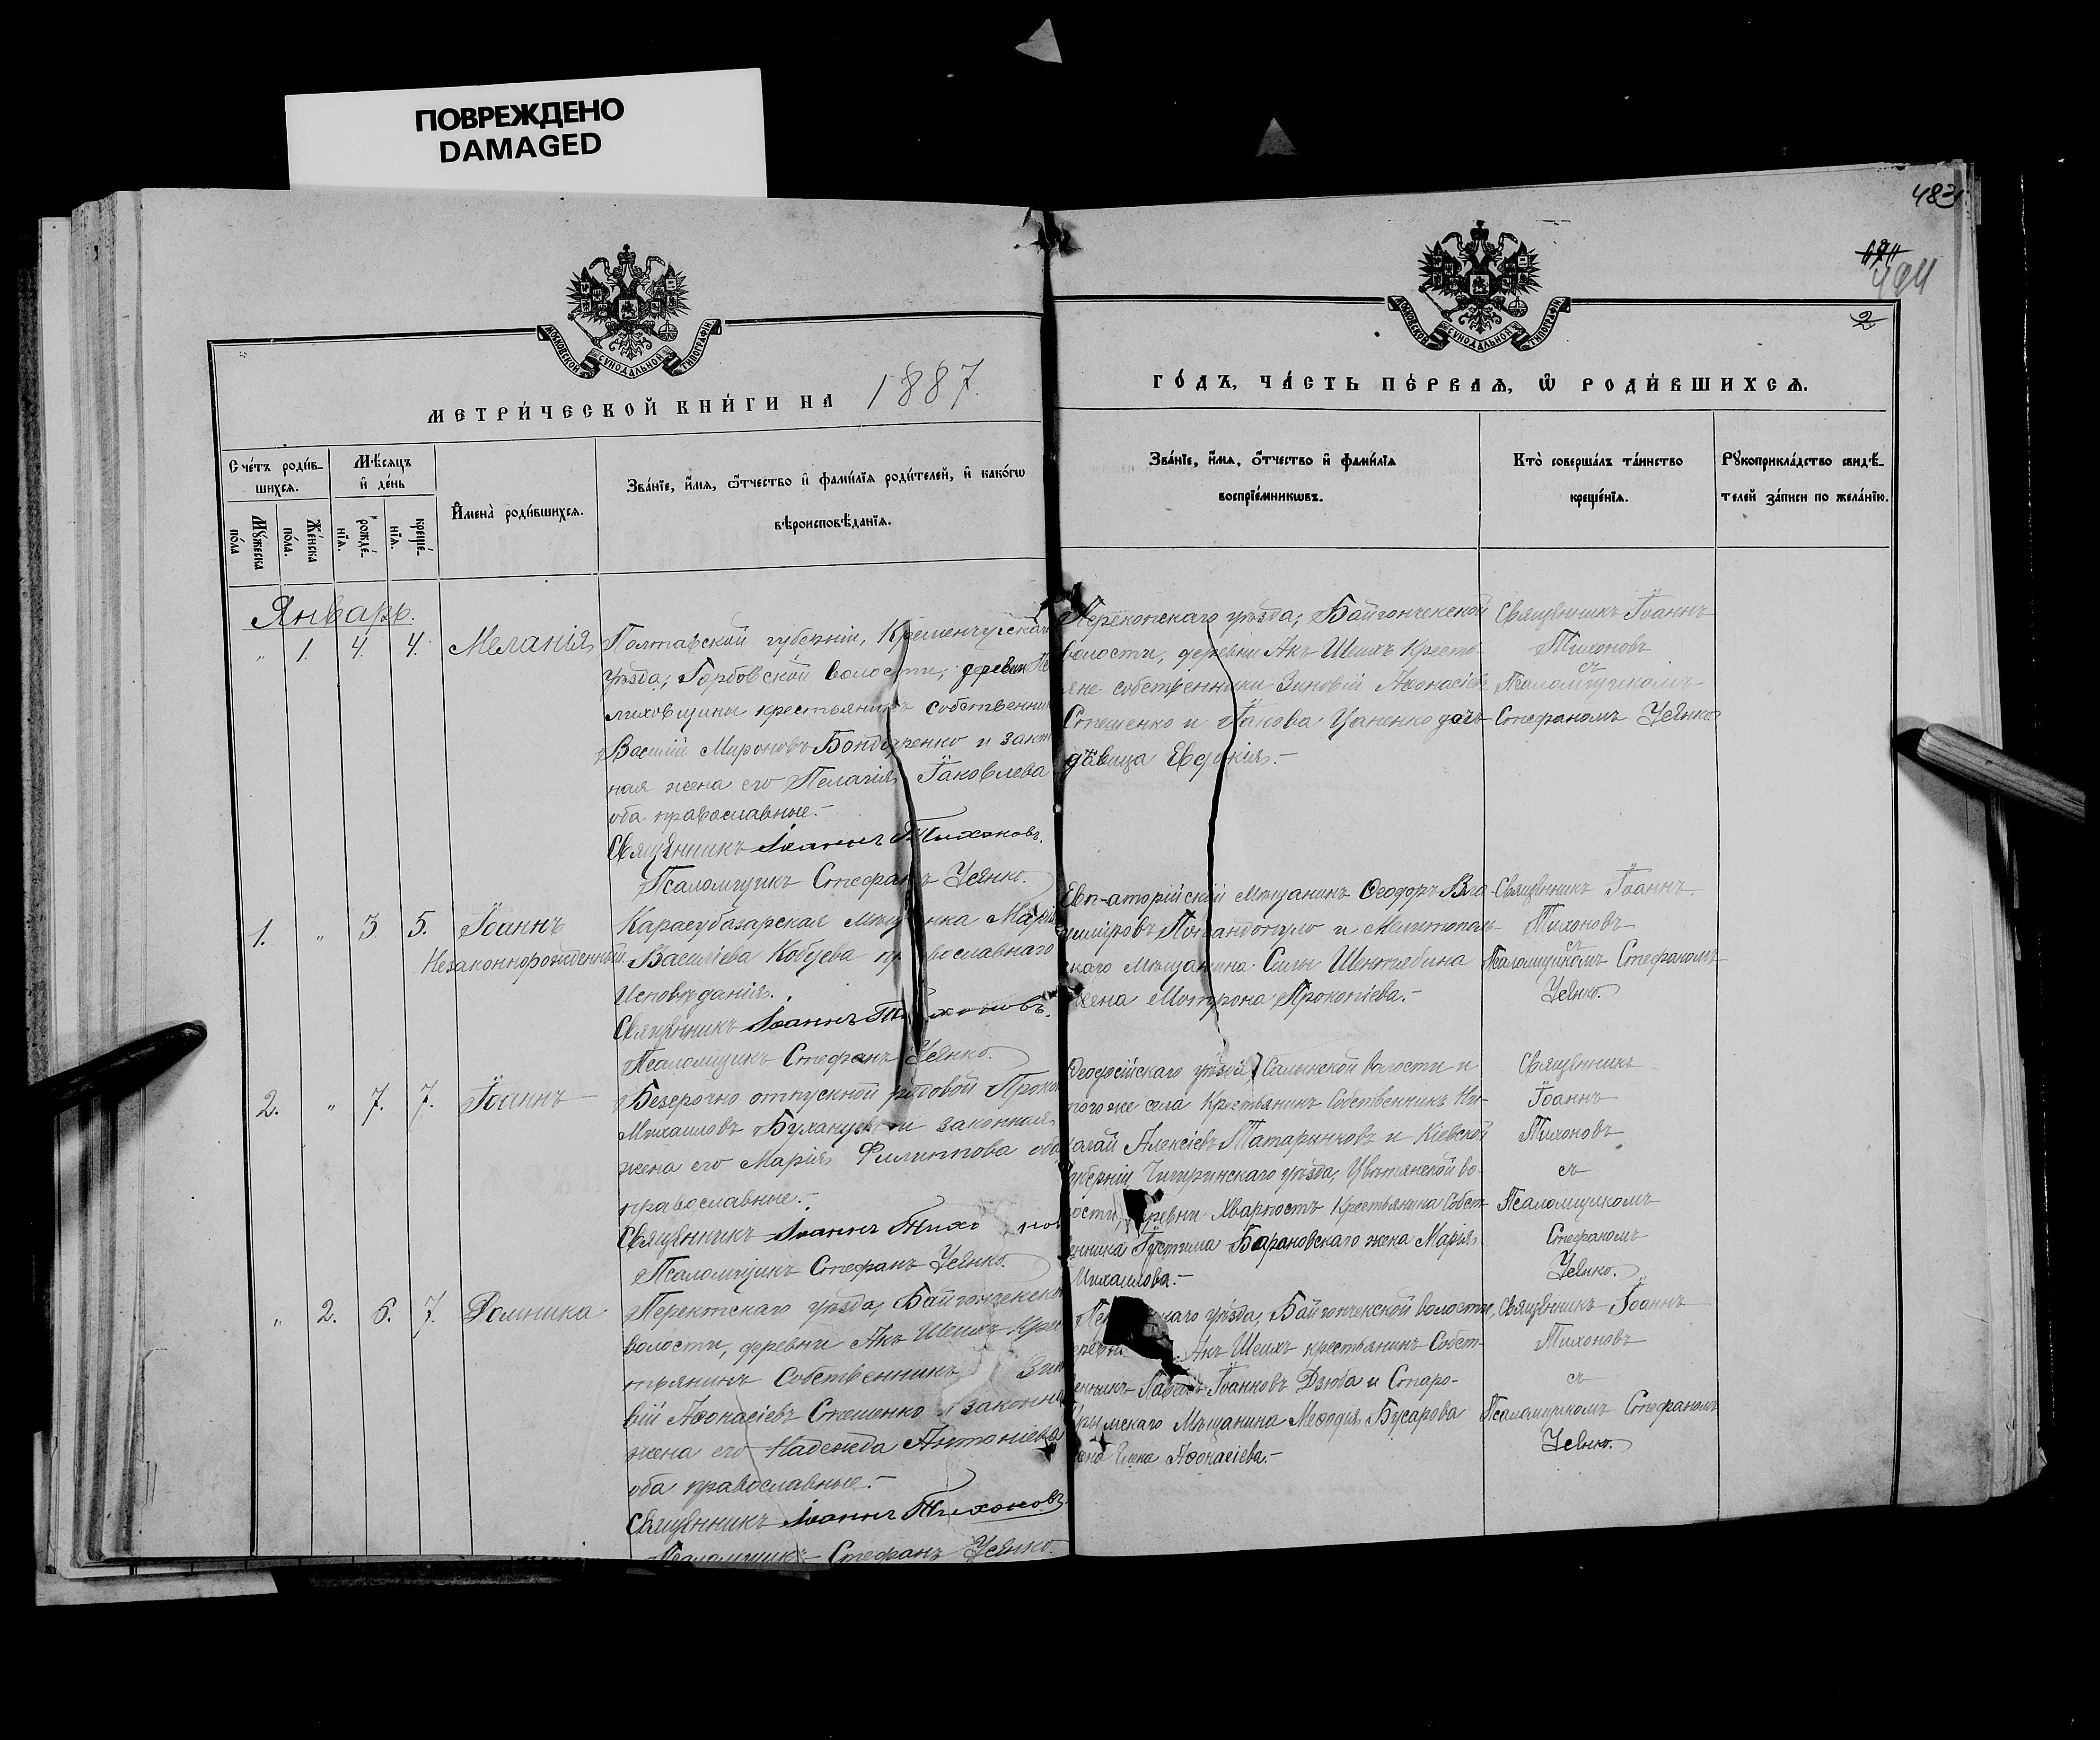 ПОВРЕЖДЕНО
DAMAGED
483
494
2
МОСКОВСКОЙ СУНОДАЛЬНОЙ ТИПОГРАФІИ
МОСКОВСКОЙ СУНОДАЛЬНОЙ ТИПОГРАФІИ
МЕТРИ́ЧЕСКОЙ КНИ́ГИ НА 1887.
ГО́ДЪ, ЧА́СТЬ ПЕ́РВАѦ, Ѡ҆ РОДИ́ВШИХСѦ.
Сче́тъ роди́в-
шихсѧ.
Мѣ́сѧцъ
и҆ де́нь
Мꙋ́жеска
по́ла
Же́нска
по́ла.
рожде́-
нїѧ.
креще́-
нїѧ.
И҆мена̀ роди́вшихсѧ.
Зва́нїе, и҆́мѧ, ѻ҆́тчество и҆ фами́лїѧ роди́телей, и҆ како́гѡ
вѣроисповѣ́данїѧ.
Зва́нїе, и҆́мѧ, ѻ҆́тчество и҆ фами́лїѧ
воспрїе́мникѡвъ.
Кто̀ соверша́лъ та́инство
креще́нїѧ.
Рꙋкоприкла́дство свидѣ́-
телей за́писи по жела́нїю.
Январь.
" 1. 4. 4. Меланія
Полтавской губерніи, Кременчугскаго
уѣзда, Горбовской волости, деревни
лиховщины крестьянинъ собственник
Василій Мироновъ Бондаренко и закон
ная жена его Пелагія Іаковлева
оба православные.-
Священникъ Іоаннъ Тихоновъ.
Псаломщикъ Стефанъ Усенко.
Перекопскаго уѣзда, Байгончекской
волости, деревни Акъ Шеихъ Кресть
яне собственники Зиновій Аѳонасіевъ
Стешенко и Іакова Цаненко дочь
дѣвица Евдокія.-
Священникъ Іоаннъ
Тихоновъ
съ
Псаломщикомъ
Стефаномъ Усенко
1. " 3. 5. Іоаннъ
Незаконнорожденный
Карасубазарская мѣщанка Марія
Василіева Кобцева православнаго
Исповѣданія.
Священникъ Іоаннъ Тихоновъ.
Псаломщикъ Стефанъ Усенко.
Евпаторійскій Мѣщанинъ Ѳеодоръ Вла
диміровъ и Мелитополь-
скаго Мѣщанина Силы
жена Мотрона Прокопіева.-
Священникъ Іоаннъ
Тихоновъ
съ
Псаломщикомъ Стефаномъ
Усенко.
2. " 7. 7. Іоаннъ
Безсрочно отпускной рядовой Проко
Михаиловъ и законная
жена его Марія Филиппова оба
православные.-
Священникъ Іоаннъ Тихонов
Псаломщикъ Стефанъ Усенко.
Ѳеодосійскаго уѣзда, Салынской волости и
того же села Крестьянинъ Собственникъ Ни-
колай Алексіевъ Татаринковъ и Кіевской
губерніи Чигиринскаго уѣзда, Цвѣтянской во-
лости, деревни Крестьянина Собст-
венника Іустима Барановскаго жена Марія
Михаилова.-
Священникъ
Іоаннъ
Тихоновъ
съ
Псаломщикомъ
Стефаномъ
Усенко.
" 2. 6. 7. Домника
Перекопскаго уѣзда, Байгончекской
волости, деревни Акъ Шеихъ Крес
тьянинъ Собственникъ Зин
вій Аѳонасіевъ Стешенко и законна
жена его Надежда Антоніева
оба православные.-
Священникъ Іоаннъ Тихоновъ
Псаломщикъ Стефанъ Усенко.
Пе скаго уѣзда, Байгончекской волости,
деревни Акъ Шеихъ крестьянинъ Собст-
венникъ Іоанновъ Дзюба и Старо-
крымскаго Мѣщанина Меѳодія Бусарова
жена Елена Аѳонасіева.-
Священникъ Іоаннъ
Тихоновъ
съ
Псаломщикомъ Стефаномъ
Усенко.